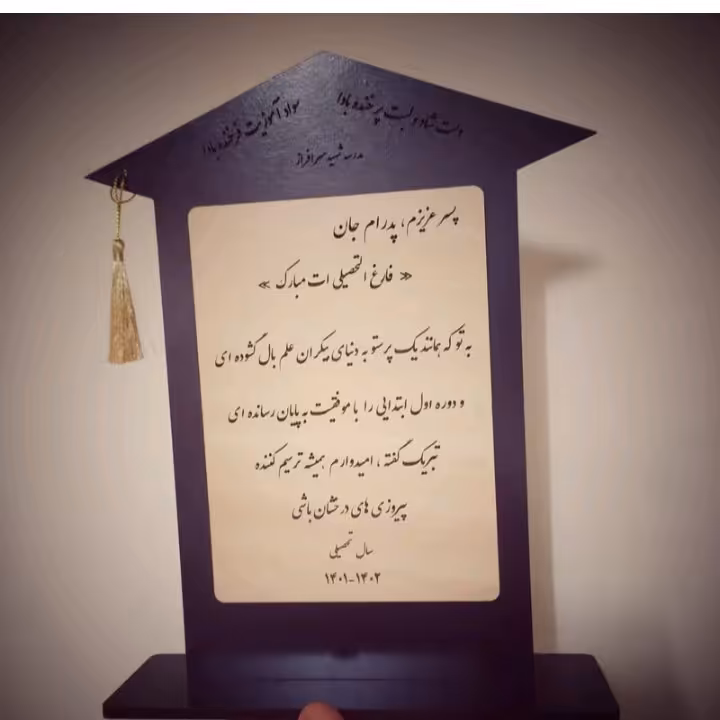 دلت شاد و لبت پر خنده بادا
سواد آموزیت فرخنده بادا
مدرسه شهید سرافراز
پسر عزیزم، پدرام جان
« فارغ التحصیلی ات مبارک »
به تو که همانند یک پرستو به دنیای بیکران علم بال گشوده ای
و دوره اول ابتدایی را با موفقیت به پایان رسانده ای
تبریک گفته ، امیدوارم همیشه ترسیم کننده
پیروزی های درخشان باشی
سال تحصیلی
۱۴۰۱-۱۴۰۲